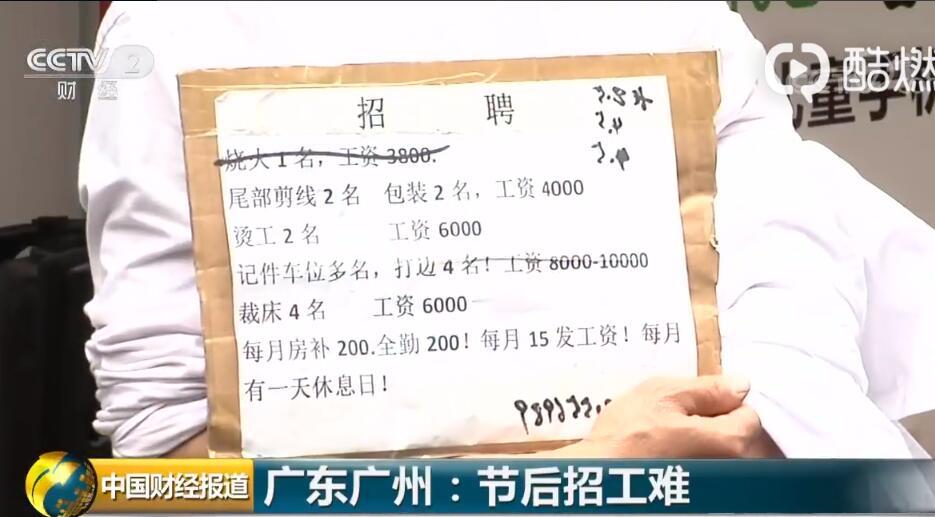 CCTV 2
财经
酷燃
童学
招 聘
烧火 1 名，工资 3800.
尾部剪线 2 名 包装 2 名，工资 4000
烫工 2 名 工资 6000
记件车位多名，打边 4 名！工资 8000-10000
裁床 4 名 工资 6000
每月房补 200.全勤 200！每月 15 发工资！每月
有一天休息日！
中国财经报道
广东广州：节后招工难